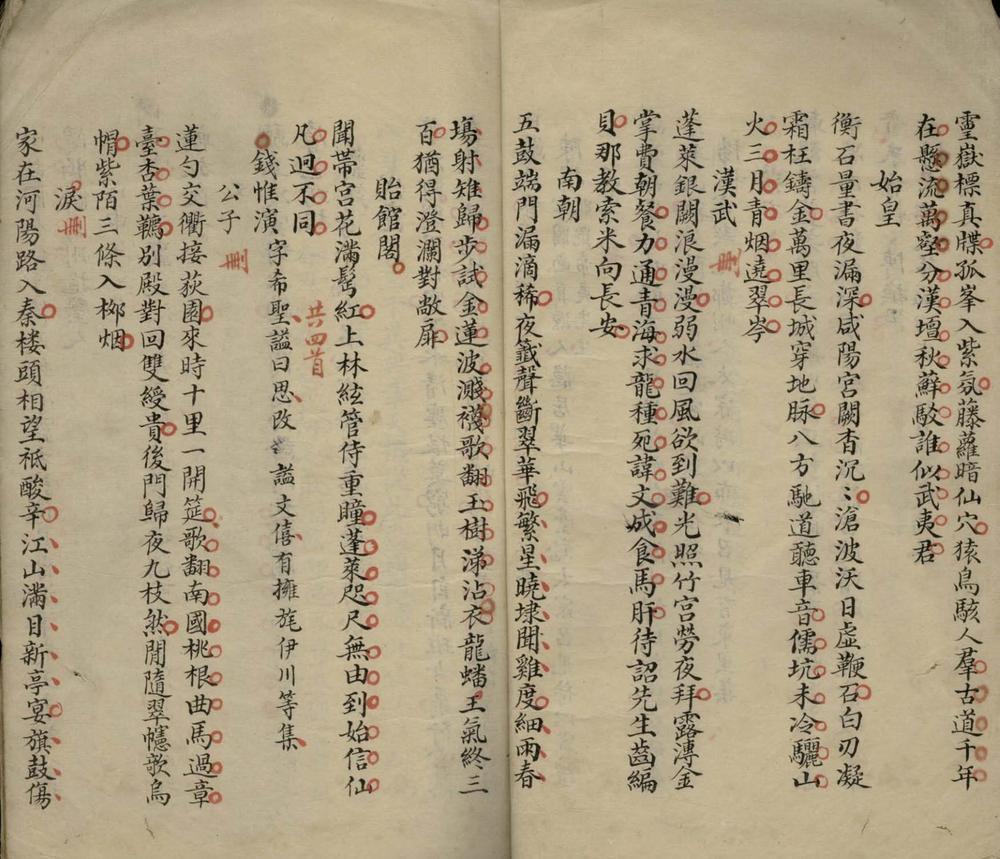 靈嶽標真牒孤峯入紫氛藤蘿暗仙穴猿鳥駭人羣古道千年
在懸流萬壑分漢壇秋蘚駁誰似武夷君
始皇
衡石量書夜漏深咸陽宮闕杳沉〻滄波沃日虛鞭石白刃凝
霜枉鑄金萬里長城穿地脉八方馳道聽車音儒坑未冷驪山
火三月青烟遶翠岑
漢武 刪
蓬萊銀闕浪漫漫弱水回風欲到難光照竹宮勞夜拜露漙金
掌費朝餐力通青海求龍種死諱文成食馬肝待詔先生齒編
貝那教索米向長安
南朝
五鼓端門漏滴稀夜籤聲斷翠華飛繁星曉埭聞雞度細雨春
塲射雉歸步試金蓮波濺襪歌翻玉樹涕沾衣龍蟠王氣終三
百猶得澄瀾對敞扉
貽館閣
聞帶宮花滿鬂紅上林絃管侍重瞳蓬萊咫尺無由到始信仙
凡迥不同 共四首
錢惟演 字希聖謚曰思改謚文僖有擁旄伊川等集
公子 刪
蓮勺交衢接荻園來時十里一開筵歌翻南國桃根曲馬過章
臺杏葉韉別殿對回雙綬貴後門歸夜九枝然閒隨翠幰歌烏
帽紫陌三條入栁烟
淚 刪
家在河陽路入秦楼頭相望祗酸辛江山滿目新亭宴旗鼓傷